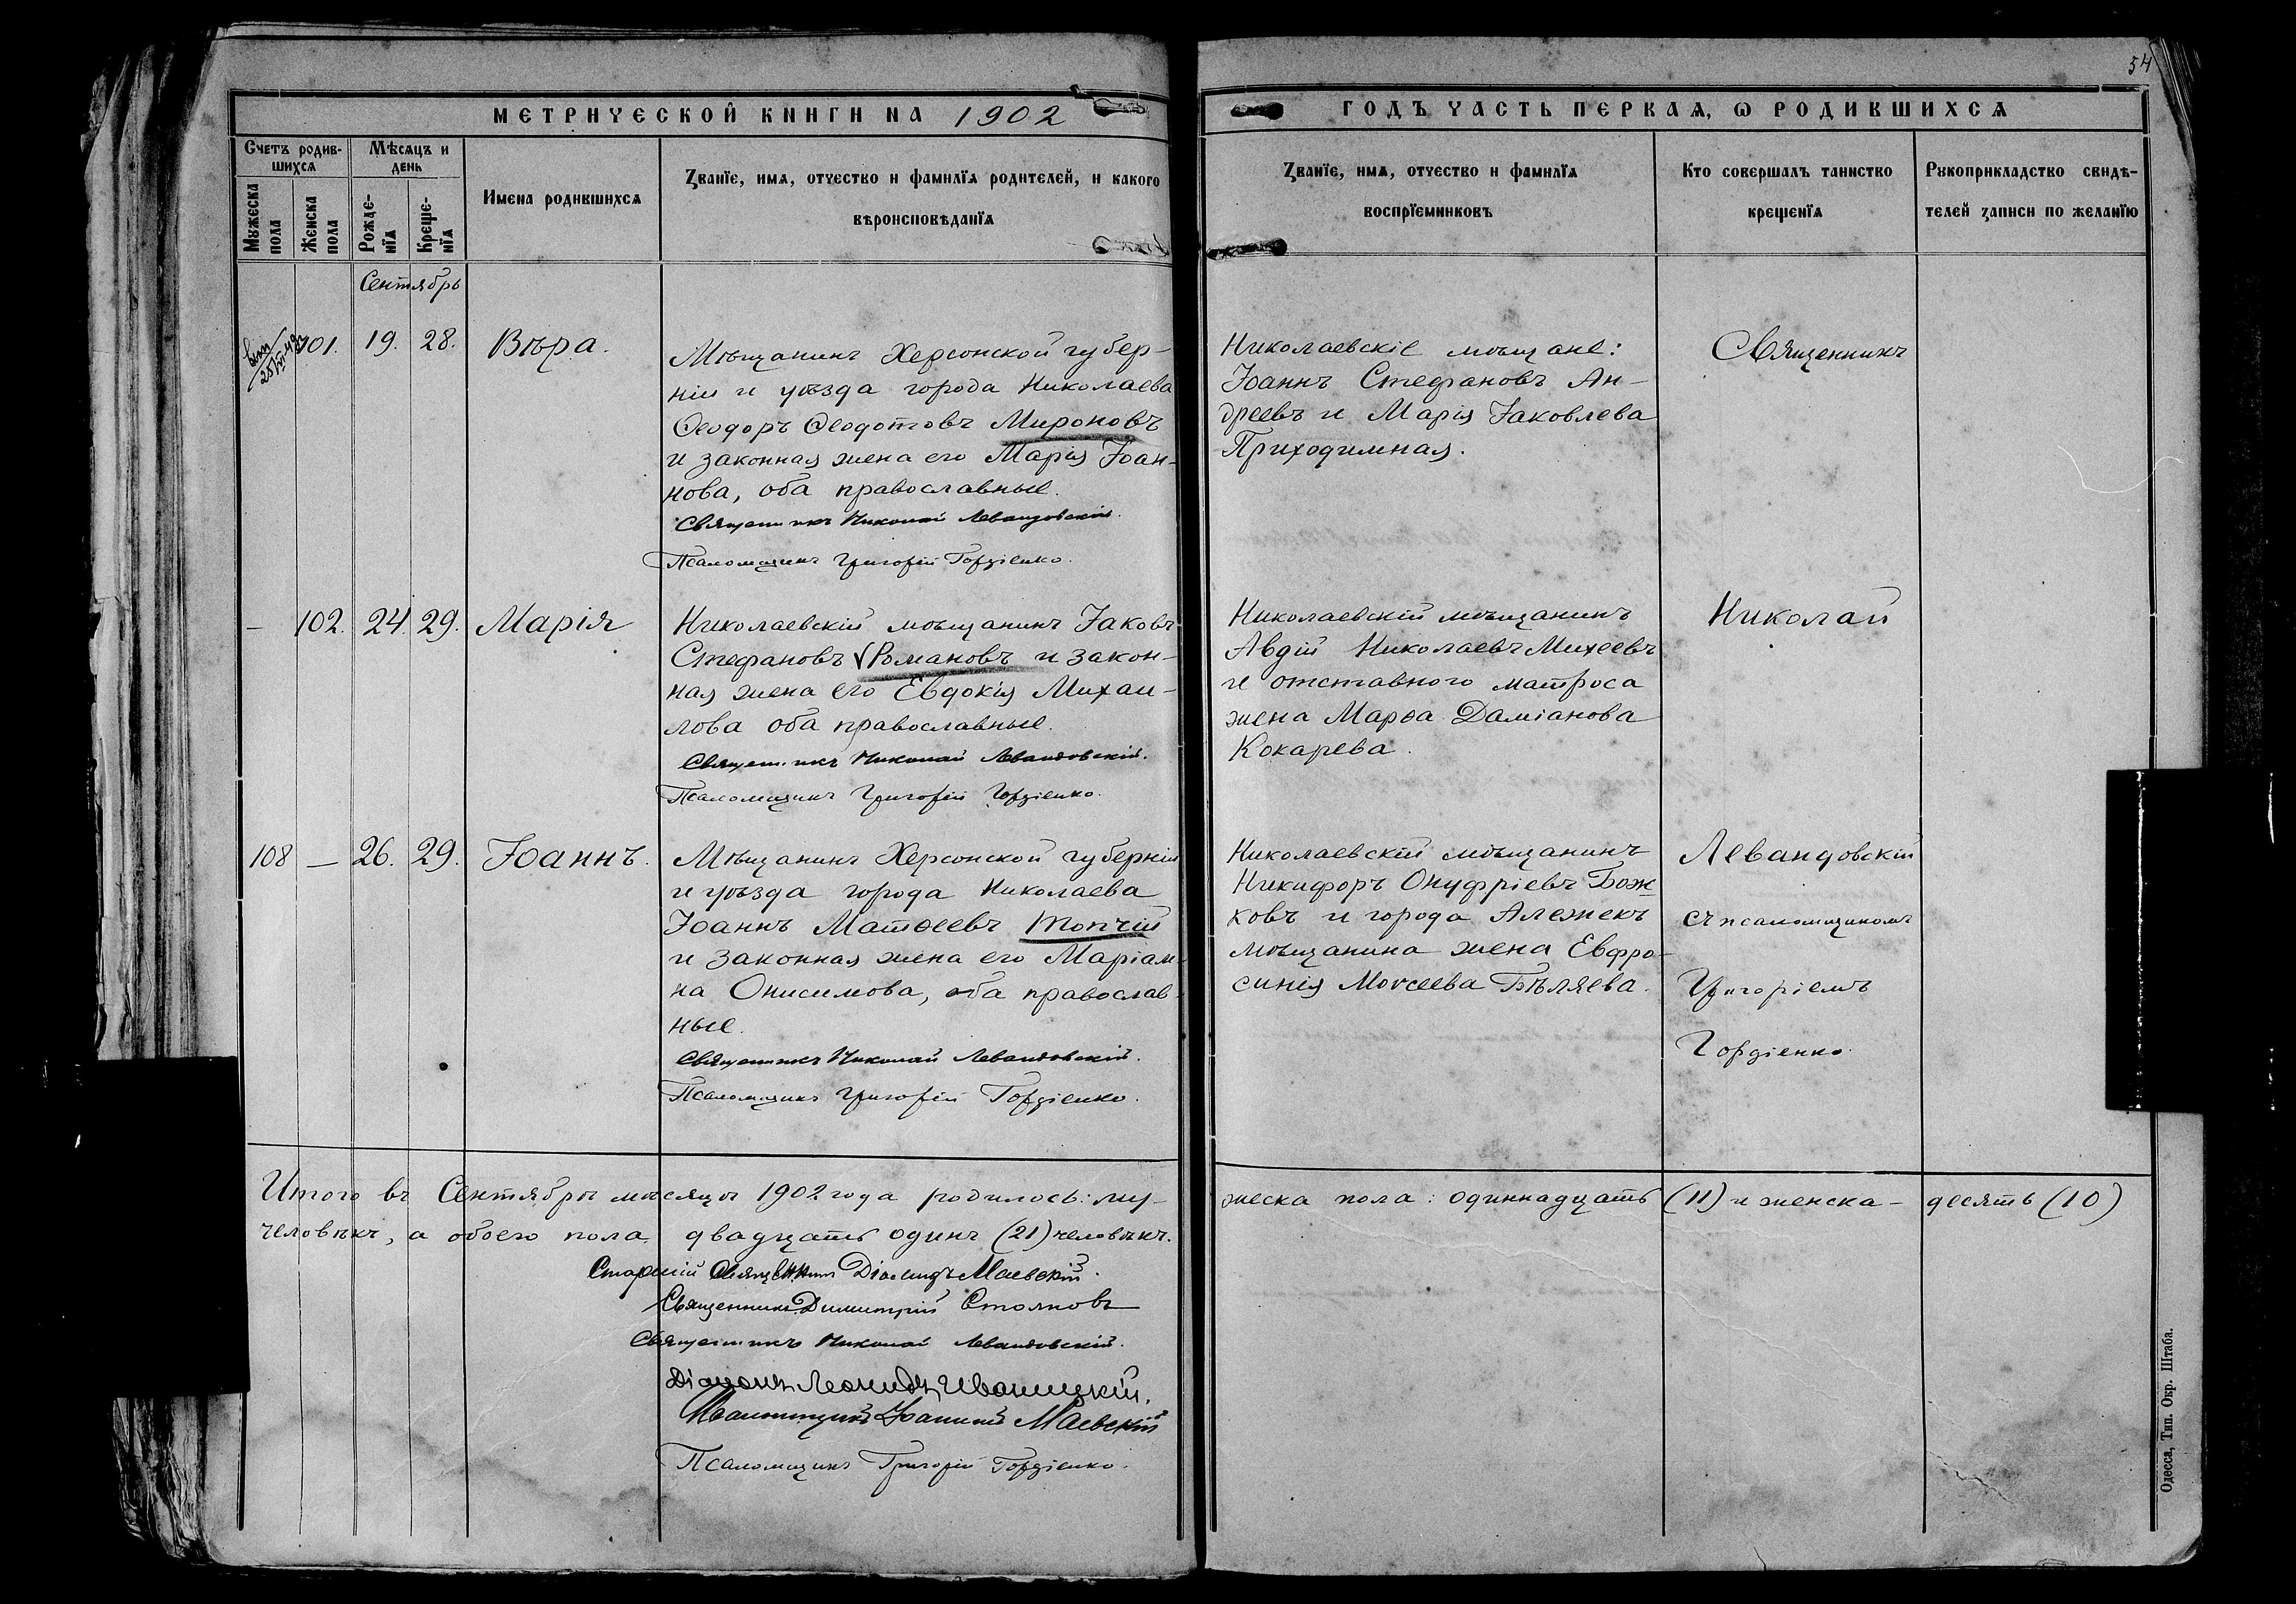 54
МЕТРИЧЕСКОЙ КНИГИ НА 1902
ГОДЪ ЧАСТЬ ПЕРВАЯ, Ѡ РОДИВШИХСЯ
Счетъ родив-
шихся
Мѣсяцъ и
день
Мужеска
пола
Женска
пола
Рожде-
нїя
Креще-
нїя
Имена родившихся
Званїе, имя, отчество и фамилїя родителей, и какого
вѣроисповѣданїя
Званїе, имя, отчество и фамилїя
воспрїемниковъ
Кто совершалъ таинство
крещенїя
Рукоприкладство свидѣ-
телей записи по желанїю
Сентябрь
101. 19. 28. Вѣра.
Мѣщанинъ Херсонской губер-
ніи и уѣзда города Николаева
Ѳеодоръ Ѳеодотовъ Мироновъ
и законная жена его Марія Іоан-
нова, оба православные.
Священникъ Николай Левандовскій.
Псаломщикъ Григорій Гордіенко.
Николаевскіе мѣщане:
Іоаннъ Стефановъ Ан-
дреевъ и Марія Іаковлева
Приходимная.
Священникъ
– 102. 24. 29. Марія
Николаевскій мѣщанинъ Іаковъ
Стефановъ Романовъ и закон-
ная жена его Евдокія Михаи-
лова оба православные.
Священникъ Николай Левандовскій.
Псаломщикъ Григорій Гордіенко.
Николаевскій мѣщанинъ
Авдій Николаевъ Михеевъ
и отставного матроса
жена Марѳа Даміанова
Кокарева.
Николай
108 – 26. 29. Іоаннъ.
Мѣщанинъ Херсонской губерніи
и уѣзда города Николаева
Іоаннъ Матѳеевъ Топчій
и законная жена его Маріам-
на Онисимова, оба православ-
ные.
Священникъ Николай Левандовскій.
Псаломщикъ Григорій Гордіенко.
Николаевскій мѣщанинъ
Никифоръ Онуфріевъ Бож-
ковъ и города Алешекъ
мѣщанина жена Евфро-
синія Моѵсеева Бѣляева.
Левандовскій
съ псаломщикомъ
Григоріемъ
Гордіенко.
Итого въ Сентябрѣ мѣсяцѣ 1902 года родилось: му-
жеска пола: одиннадцать (11) и женска – десять (10)
человѣкъ, а обоего пола двадцать одинъ (21) человѣкъ.
Старшій Священникъ Маевскій.
Священникъ Димитрій Стояновъ
Священникъ Николай Левандовскій.
Діаконъ Леонидъ Иваницкій.
Псаломщикъ Іоанній Маевскій
Псаломщикъ Григорій Гордіенко.
Одесса, Тип. Окр. Штаба.